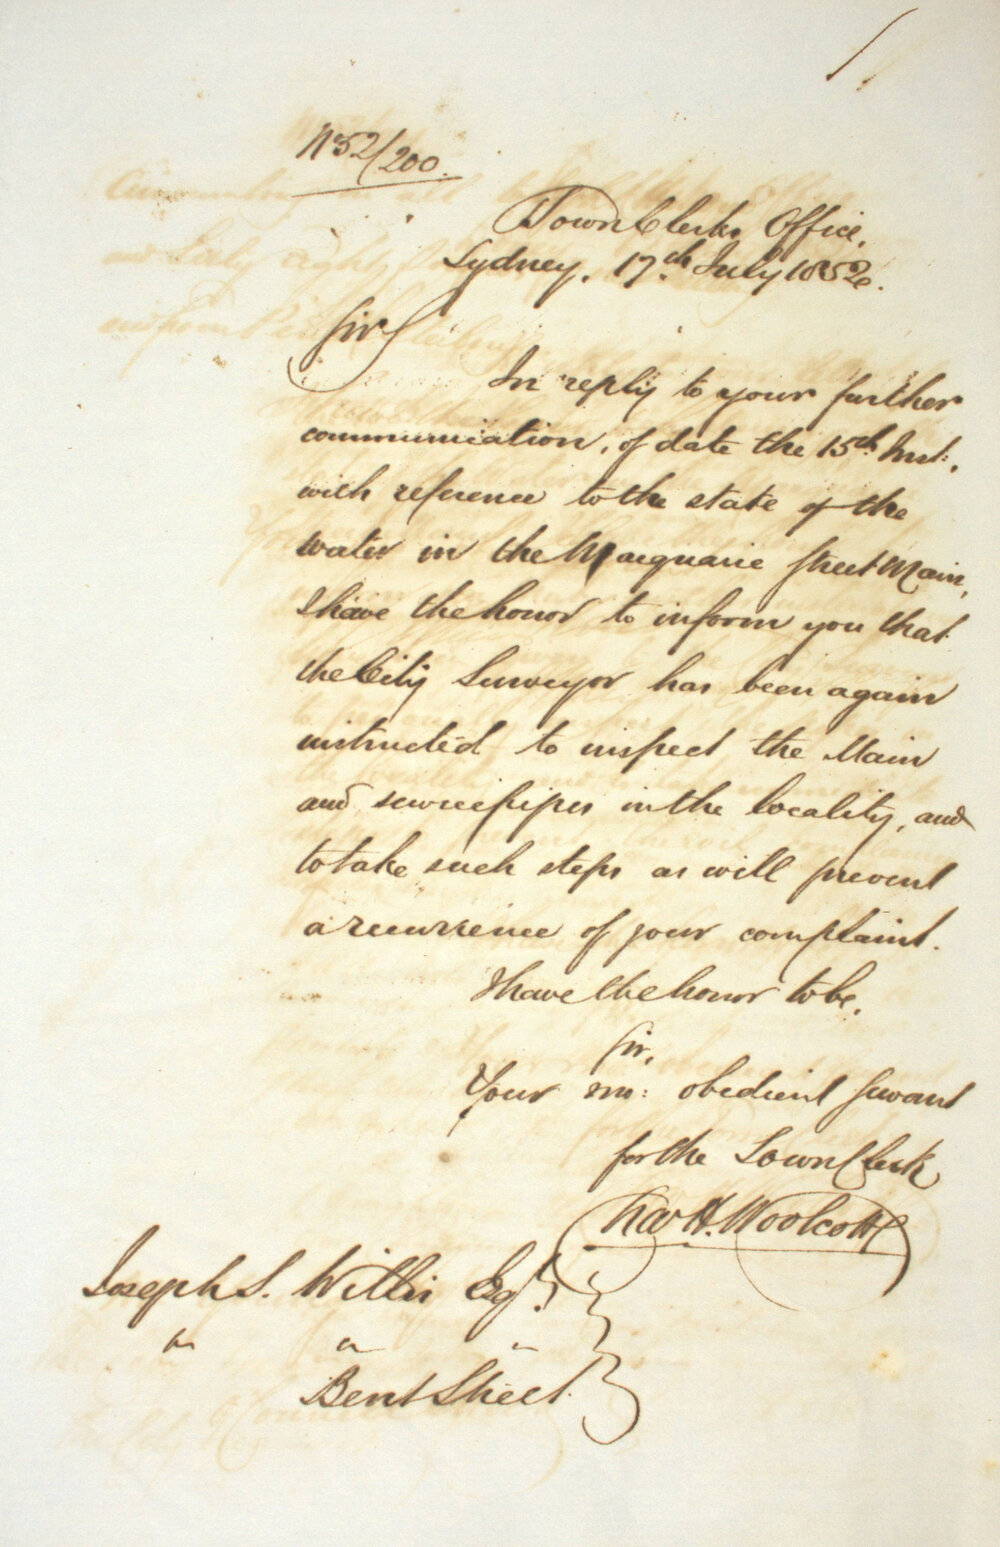 No 52/200.
Town Clerks Office,
Sydney, 17th July 1852.
Sir
In reply to your further
communication, of date the 15th Inst:,
with reference to the state of the
water in the Macquarie Street Main,
I have the honor to inform you that
the City Surveyor has been again
instructed to inspect the Main
and service pipes in the locality, and
to take such steps as will prevent
a recurrence of your complaint.
I have the honor to be,
Sir,
Your mo: obedient Servant
for the Town Clerk
Chas H. Woolcott
Joseph S. Willis Esqr.
" " "
Bent Street.